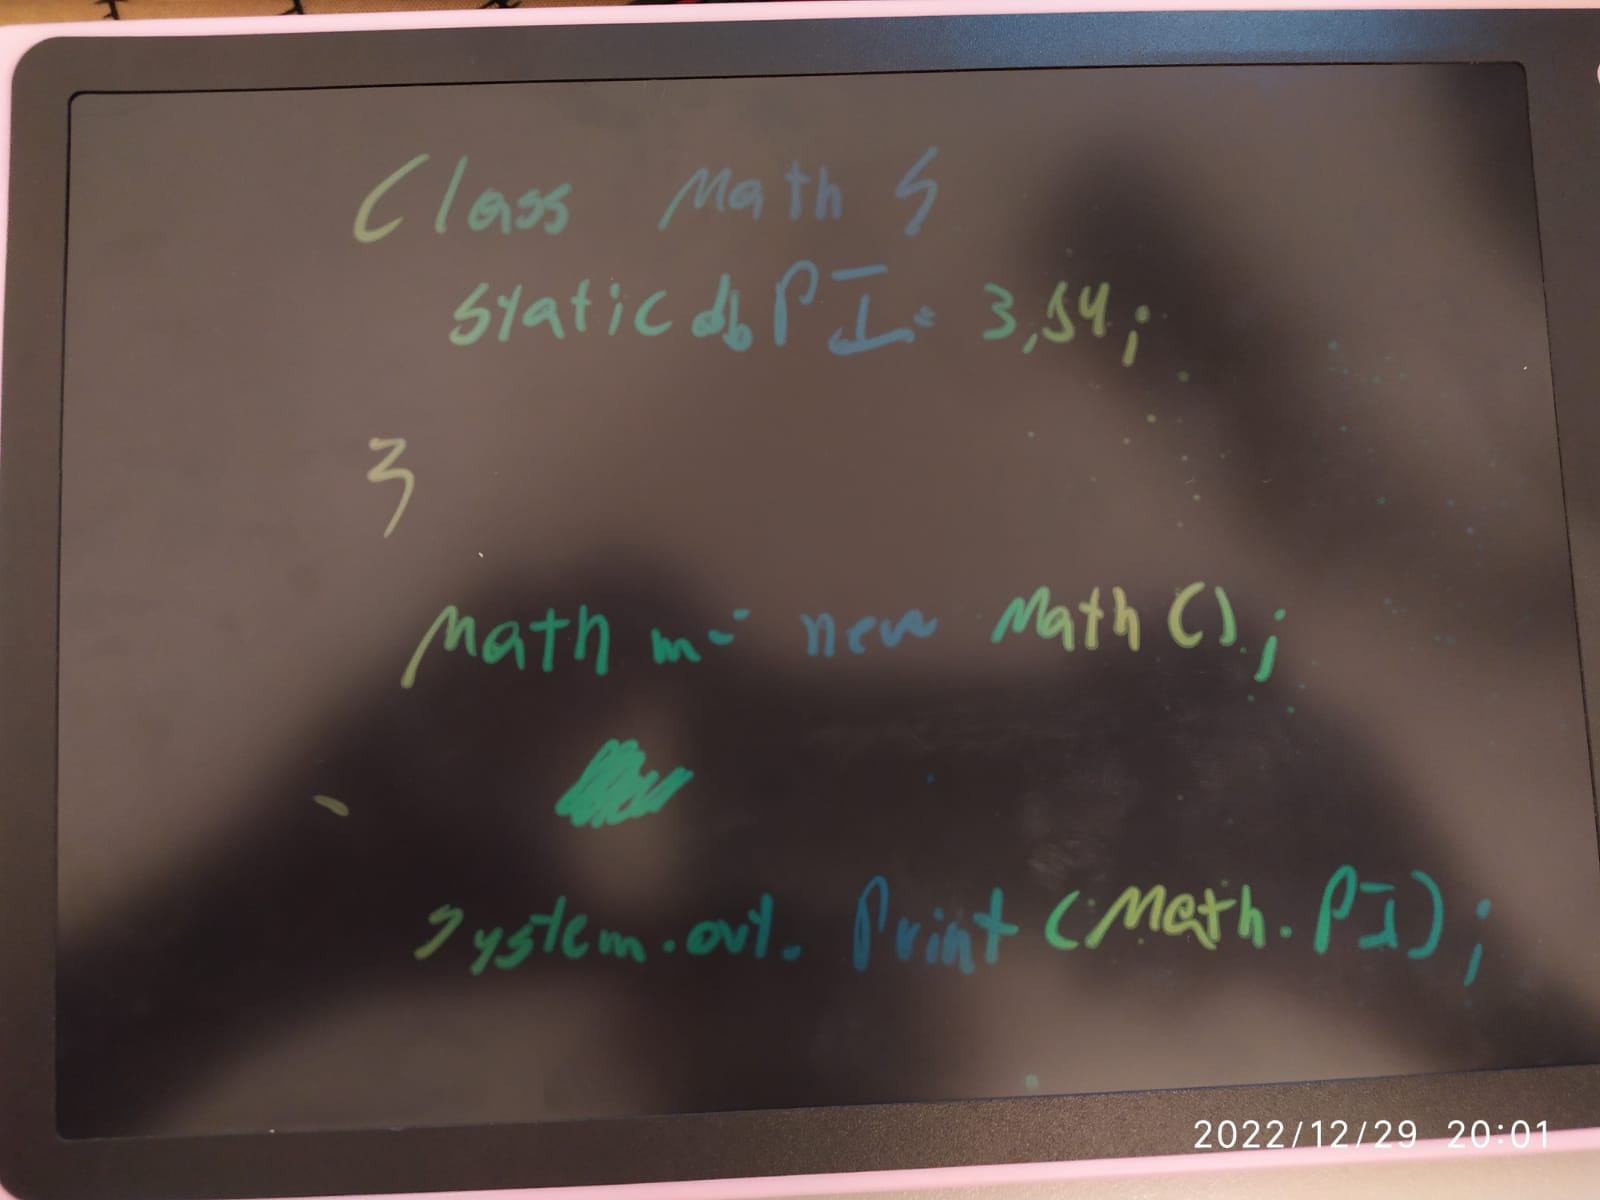 Class Math {
static db PI = 3,14;
}
Math m = new Math();
System.out.Print(Math.PI);
2022/12/29 20:01